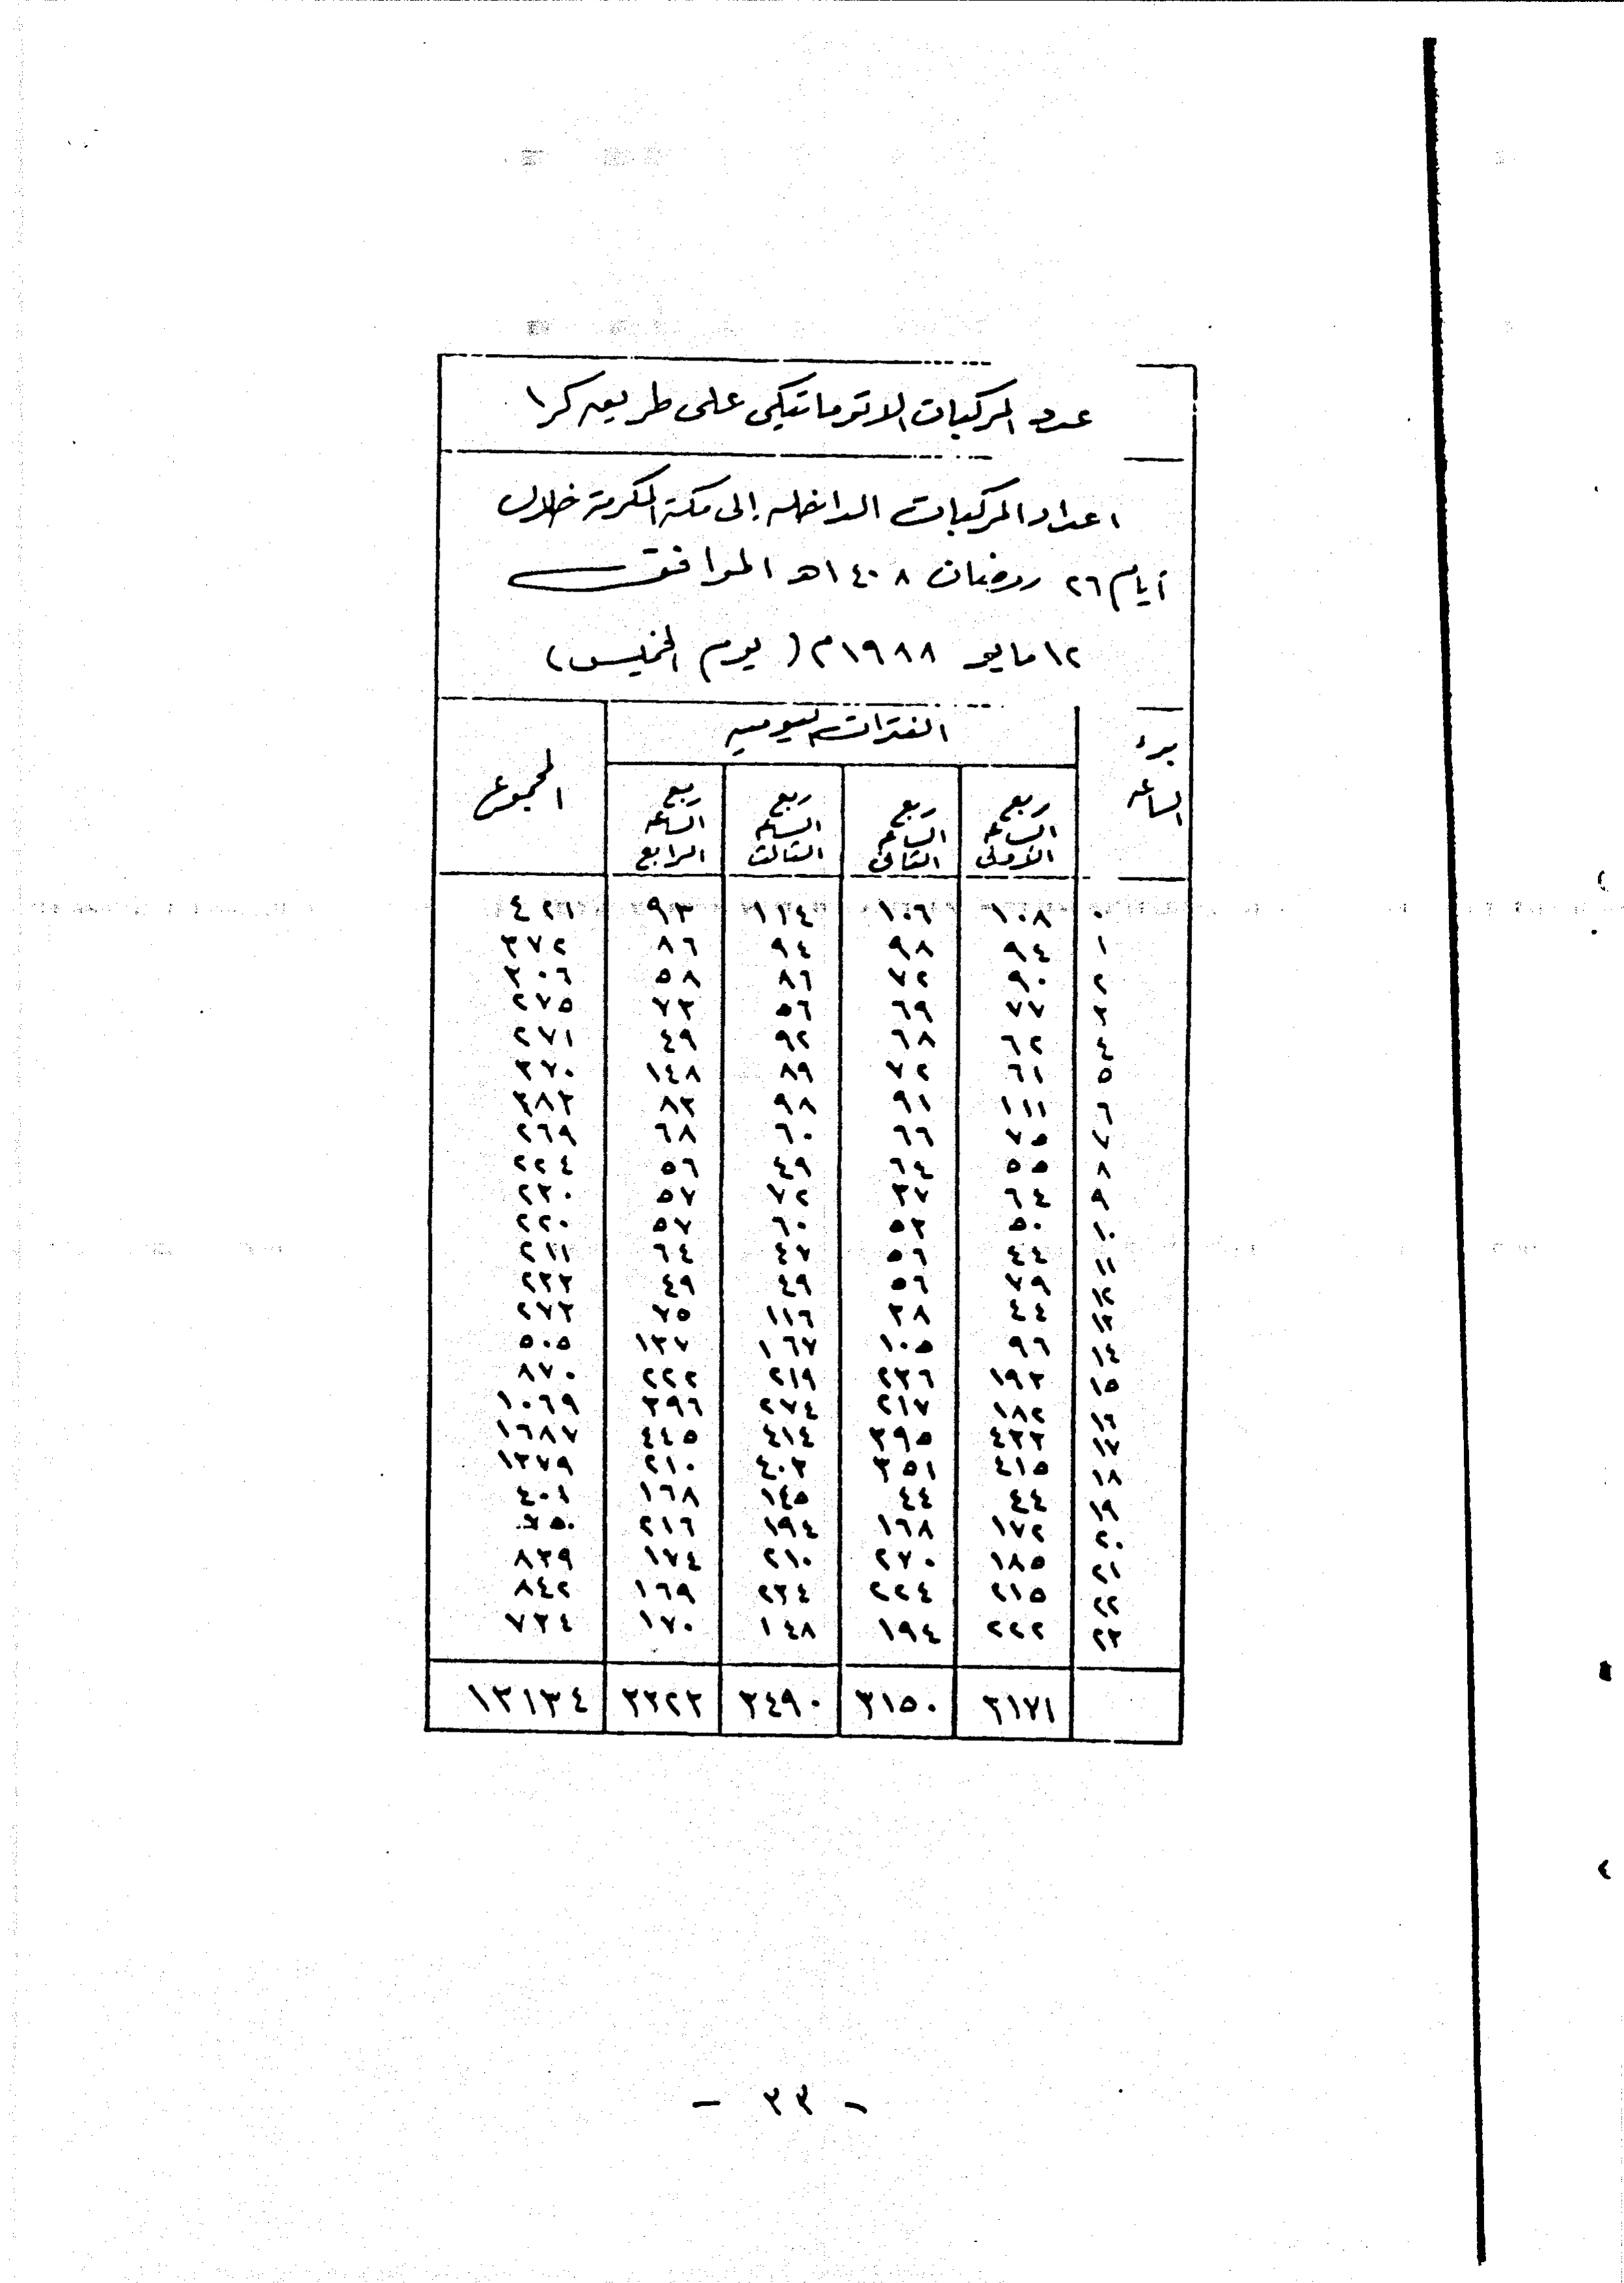 عدد المركبات الاتوماتيكى على طريق كرا
اعداد المركبات الداخله إلى مكة المكرمة خلال
أيام ٢٦ رمضان ١٤٠٨هـ الموافق
١٢ مايو ١٩٨٨م ( يوم الخميس )
بدء الساعه الفترات اليوميه المجموع
ربع الساعه الأولى ربع الساعه الثانى ربع الساعه الثالث ربع الساعه الرابع
٠ ١٠٨ ١٠٦ ١١٤ ٩٣ ٤٢١
١ ٩٤ ٩٨ ٩٤ ٨٦ ٣٧٢
٢ ٩٠ ٧٢ ٨٦ ٥٨ ٣٠٦
٣ ٧٧ ٦٩ ٥٦ ٧٣ ٢٧٥
٤ ٦٢ ٦٨ ٩٢ ٤٩ ٢٧١
٥ ٦١ ٧٢ ٨٩ ١٤٨ ٣٧٠
٦ ١١١ ٩١ ٩٨ ٨٣ ٣٨٣
٧ ٧٥ ٦٦ ٦٠ ٦٨ ٢٦٩
٨ ٥٥ ٦٤ ٤٩ ٥٦ ٢٢٤
٩ ٦٤ ٣٧ ٧٢ ٥٧ ٢٣٠
١٠ ٥٠ ٥٣ ٦٠ ٥٧ ٢٢٠
١١ ٤٤ ٥٦ ٤٧ ٦٤ ٢١١
١٢ ٧٩ ٥٦ ٤٩ ٤٩ ٢٣٣
١٣ ٤٤ ٣٨ ١١٦ ٧٥ ٢٧٣
١٤ ٩٦ ١٠٥ ١٦٧ ١٣٧ ٥٠٥
١٥ ١٩٣ ٢٣٦ ٢١٩ ٢٢٢ ٨٧٠
١٦ ١٨٢ ٢١٧ ٢٧٤ ٣٩٦ ١٠٦٩
١٧ ٤٣٣ ٣٩٥ ٤١٤ ٤٤٥ ١٦٨٧
١٨ ٤١٥ ٣٥١ ٤٠٣ ٢١٠ ١٣٧٩
١٩ ٤٤ ٤٤ ١٤٥ ١٦٨ ٤٠١
٢٠ ١٧٢ ١٦٨ ١٩٤ ٢١٦ ٧٥٠
٢١ ١٨٥ ٢٧٠ ٢١٠ ١٧٤ ٨٣٩
٢٢ ٢١٥ ٢٢٤ ٢٣٤ ١٦٩ ٨٤٢
٢٣ ٢٢٢ ١٩٤ ١٤٨ ١٧٠ ٧٣٤
٣١٧١ ٣١٥٠ ٣٤٩٠ ٣٣٢٣ ١٣١٣٤
- ٣٣ -